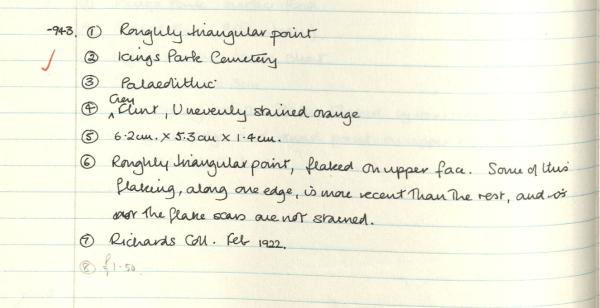 -943. ① Roughly triangular point
② Kings Park Cemetery
③ Palaeolithic
④ Grey Flint, Unevenly stained orange
⑤ 6.2cm. x 5.3cm x 1.4cm.
⑥ Roughly triangular point, flaked on upper face. Some of this
flaking, along one edge, is more recent than the rest, and
the flake scars are not stained.
⑦ Richards Coll. Feb 1922.
⑧ £1.50.